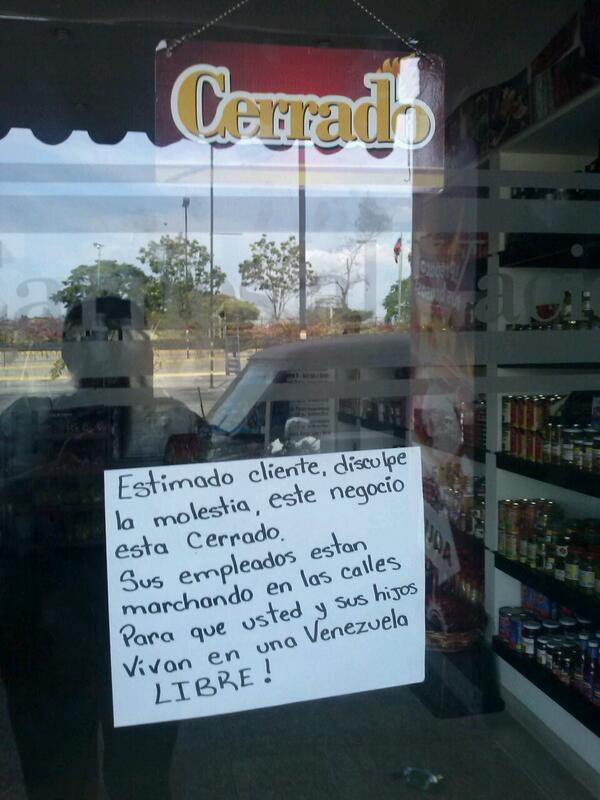 Cerrado
Estimado cliente, disculpe
la molestia, este negocio
esta Cerrado.
Sus empleados estan
marchando en las calles
Para que usted y sus hijos
Vivan en una Venezuela
LIBRE!